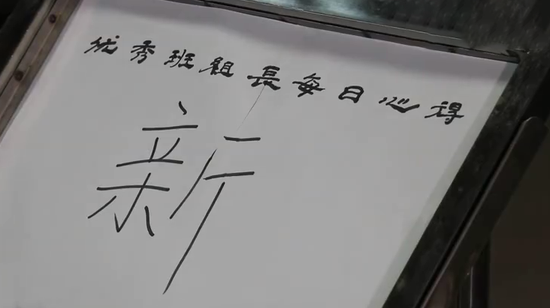 优秀班组長每日心得
新